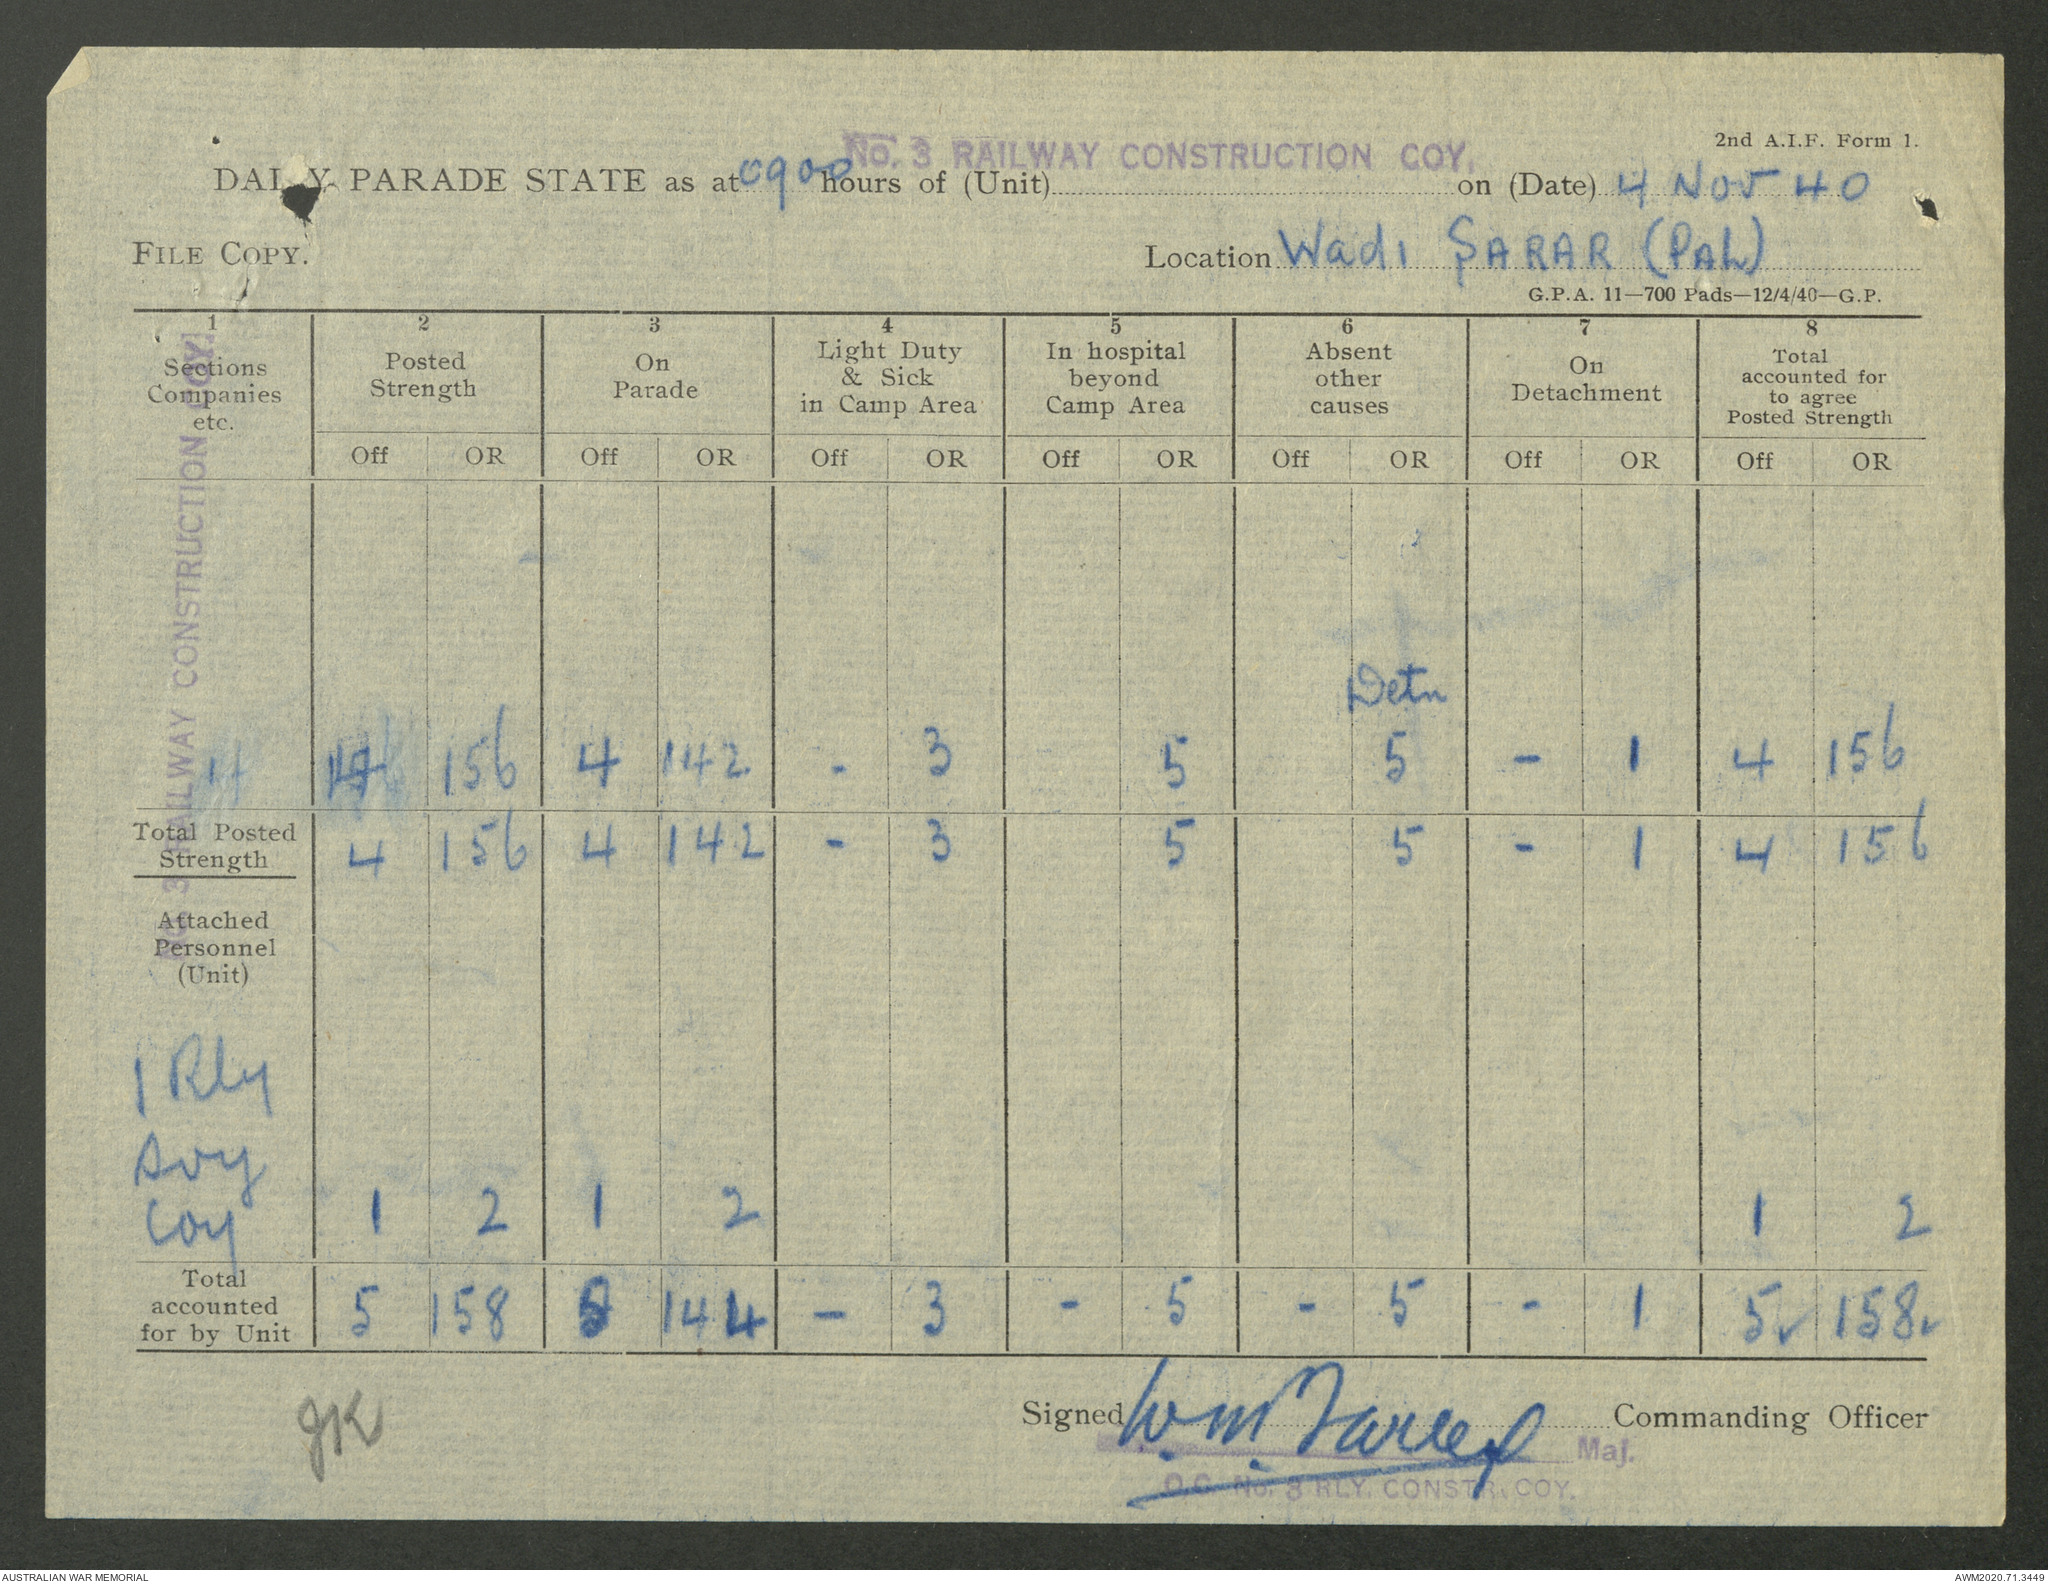 2nd A.I.F. Form 1.
No. 3 RAILWAY CONSTRUCTION COY.
DAILY PARADE STATE as at 0900 hours of (Unit) on (Date) 4 Nov 40
FILE COPY. Location Wadi SARAR (PAL)
G.P.A. 11—700 Pads—12/4/40—G.P.
1 2 3 4 5 6 7 8
Sections Companies etc.
Posted Strength
On Parade
Light Duty & Sick in Camp Area
In hospital beyond Camp Area
Absent other causes
On Detachment
Total accounted for to agree Posted Strength
Off OR Off OR Off OR Off OR Off OR Off OR Off OR
No. 3 RAILWAY CONSTRUCTION COY.
Detn
4 156 4 142 - 3 5 5 - 1 4 156
Total Posted Strength 4 156 4 142 - 3 5 5 - 1 4 156
Attached
Personnel
(Unit)
1 Rly
Svy
Coy 1 2 1 2 1 2
Total accounted for by Unit 5 158 5 144 - 3 - 5 - 5 - 1 5 158
JK
Signed Commanding Officer
Maj.
O.C. No. 3 RLY. CONSTR. COY.
AUSTRALIAN WAR MEMORIAL
AWM2020.71.3449